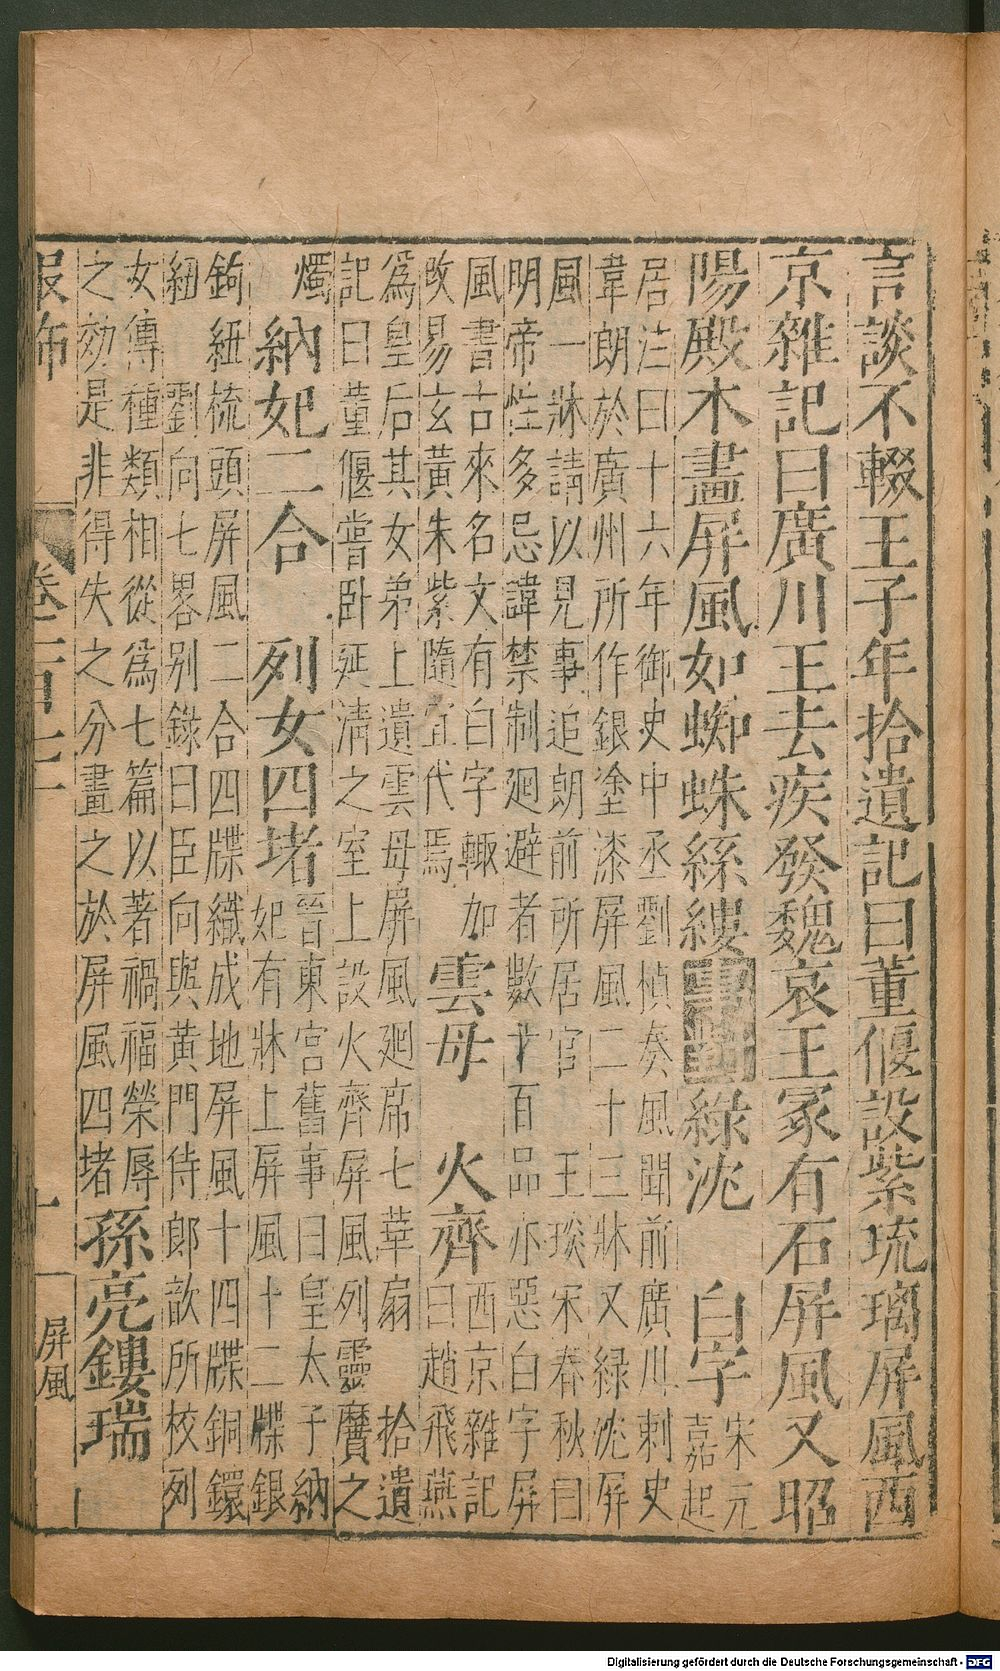 言談不輟王子年拾遺記曰董偃設紫琉璃屏風西
京雜記曰廣川王去疾發魏哀王冢有石屏風又昭
陽殿木畫屏風如蜘蛛絲縷事對綠沈　白字　宋元
嘉起
居注曰十六年御史中丞劉楨奏風聞前廣川刺史
韋朗於廣州所作銀塗漆屏風二十三牀又綠沈屏
風一牀請以見事追朗前所居官　王琰宋春秋曰
明帝性多忌諱禁制廻避者數十百品亦惡白字屏
風書古來名文有白字輙加
改易玄黃朱紫隨宜代焉
雲母　火齊　西京雜記
曰趙飛燕
為皇后其女弟上遺雲母屏風廻席七華扇　拾遺
記曰董偃嘗卧延清之室上設火齊屏風列靈之
燭　納妃二合　列女四堵　晉東宮舊事曰皇太子納
妃有牀上屏風十二牒銀
鉤紐梳頭屏風二合四牒織成地屏風十四牒銅鐶
紐　劉向七畧別錄曰臣向與黃門侍郎歆所校列
女傳種類相從為七篇以著禍福榮辱
之効是非得失之分畫之於屏風四堵
孫亮鏤瑞
服飾　卷二百七十　屏風
Digitalisierung gefördert durch die Deutsche Forschungsgemeinschaft - DFG